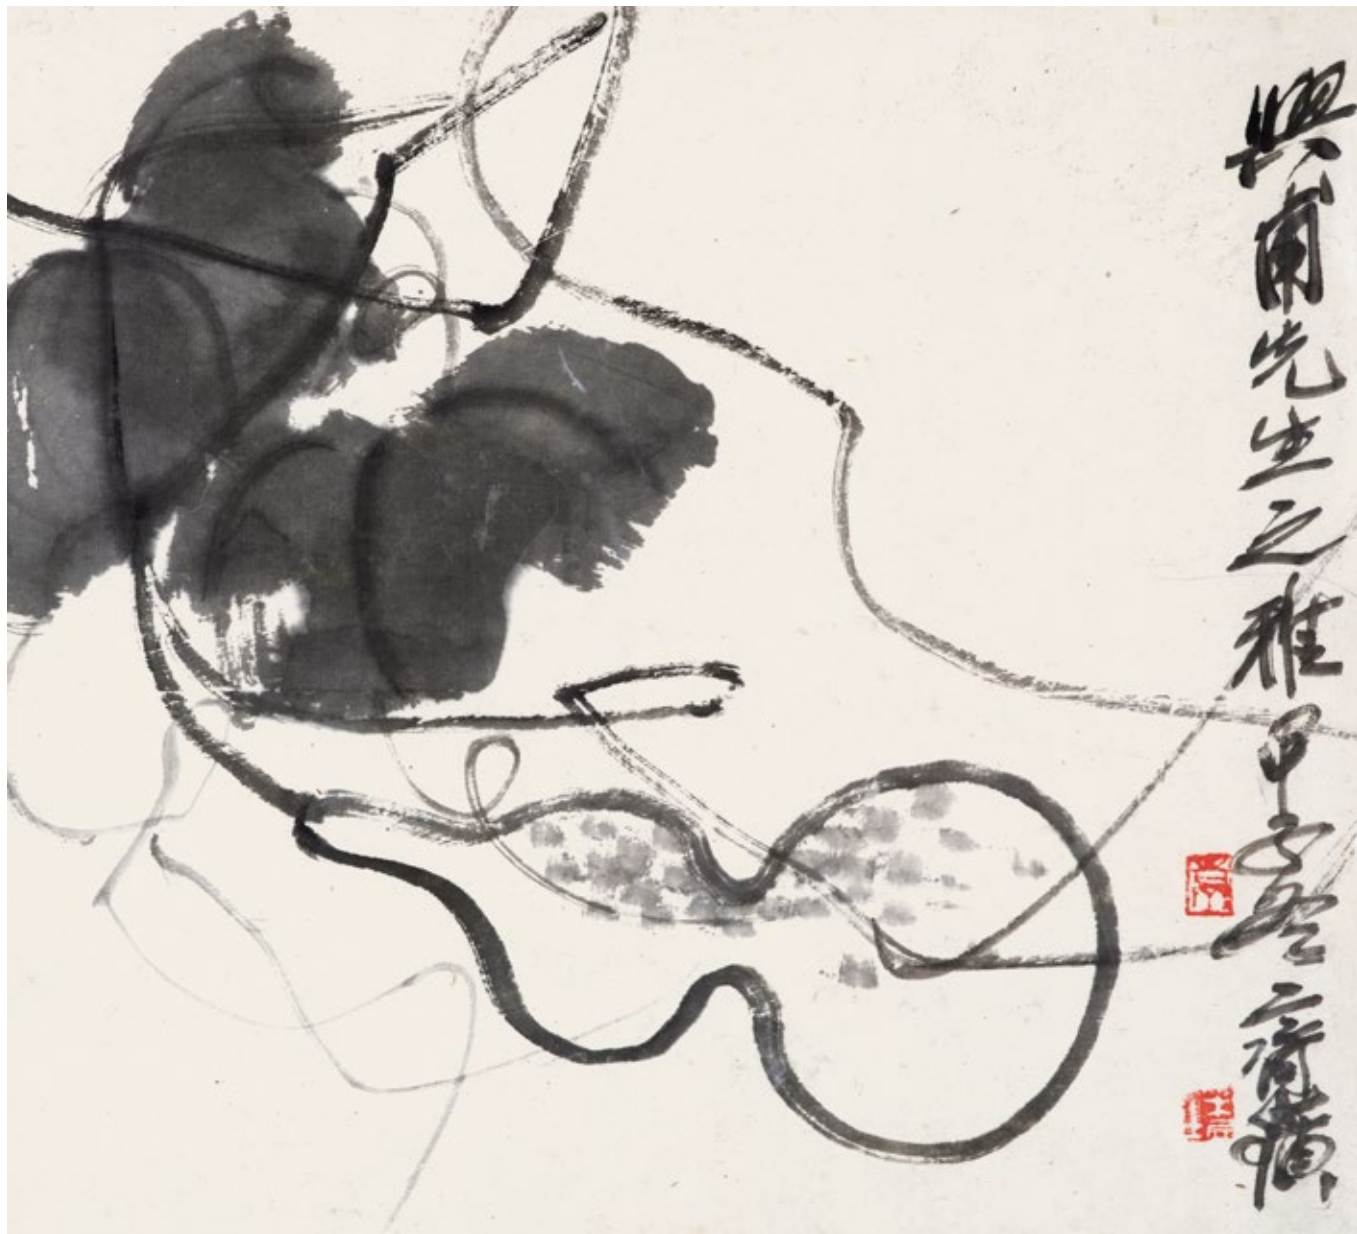 興甫先生之雅甲子冬齊璜